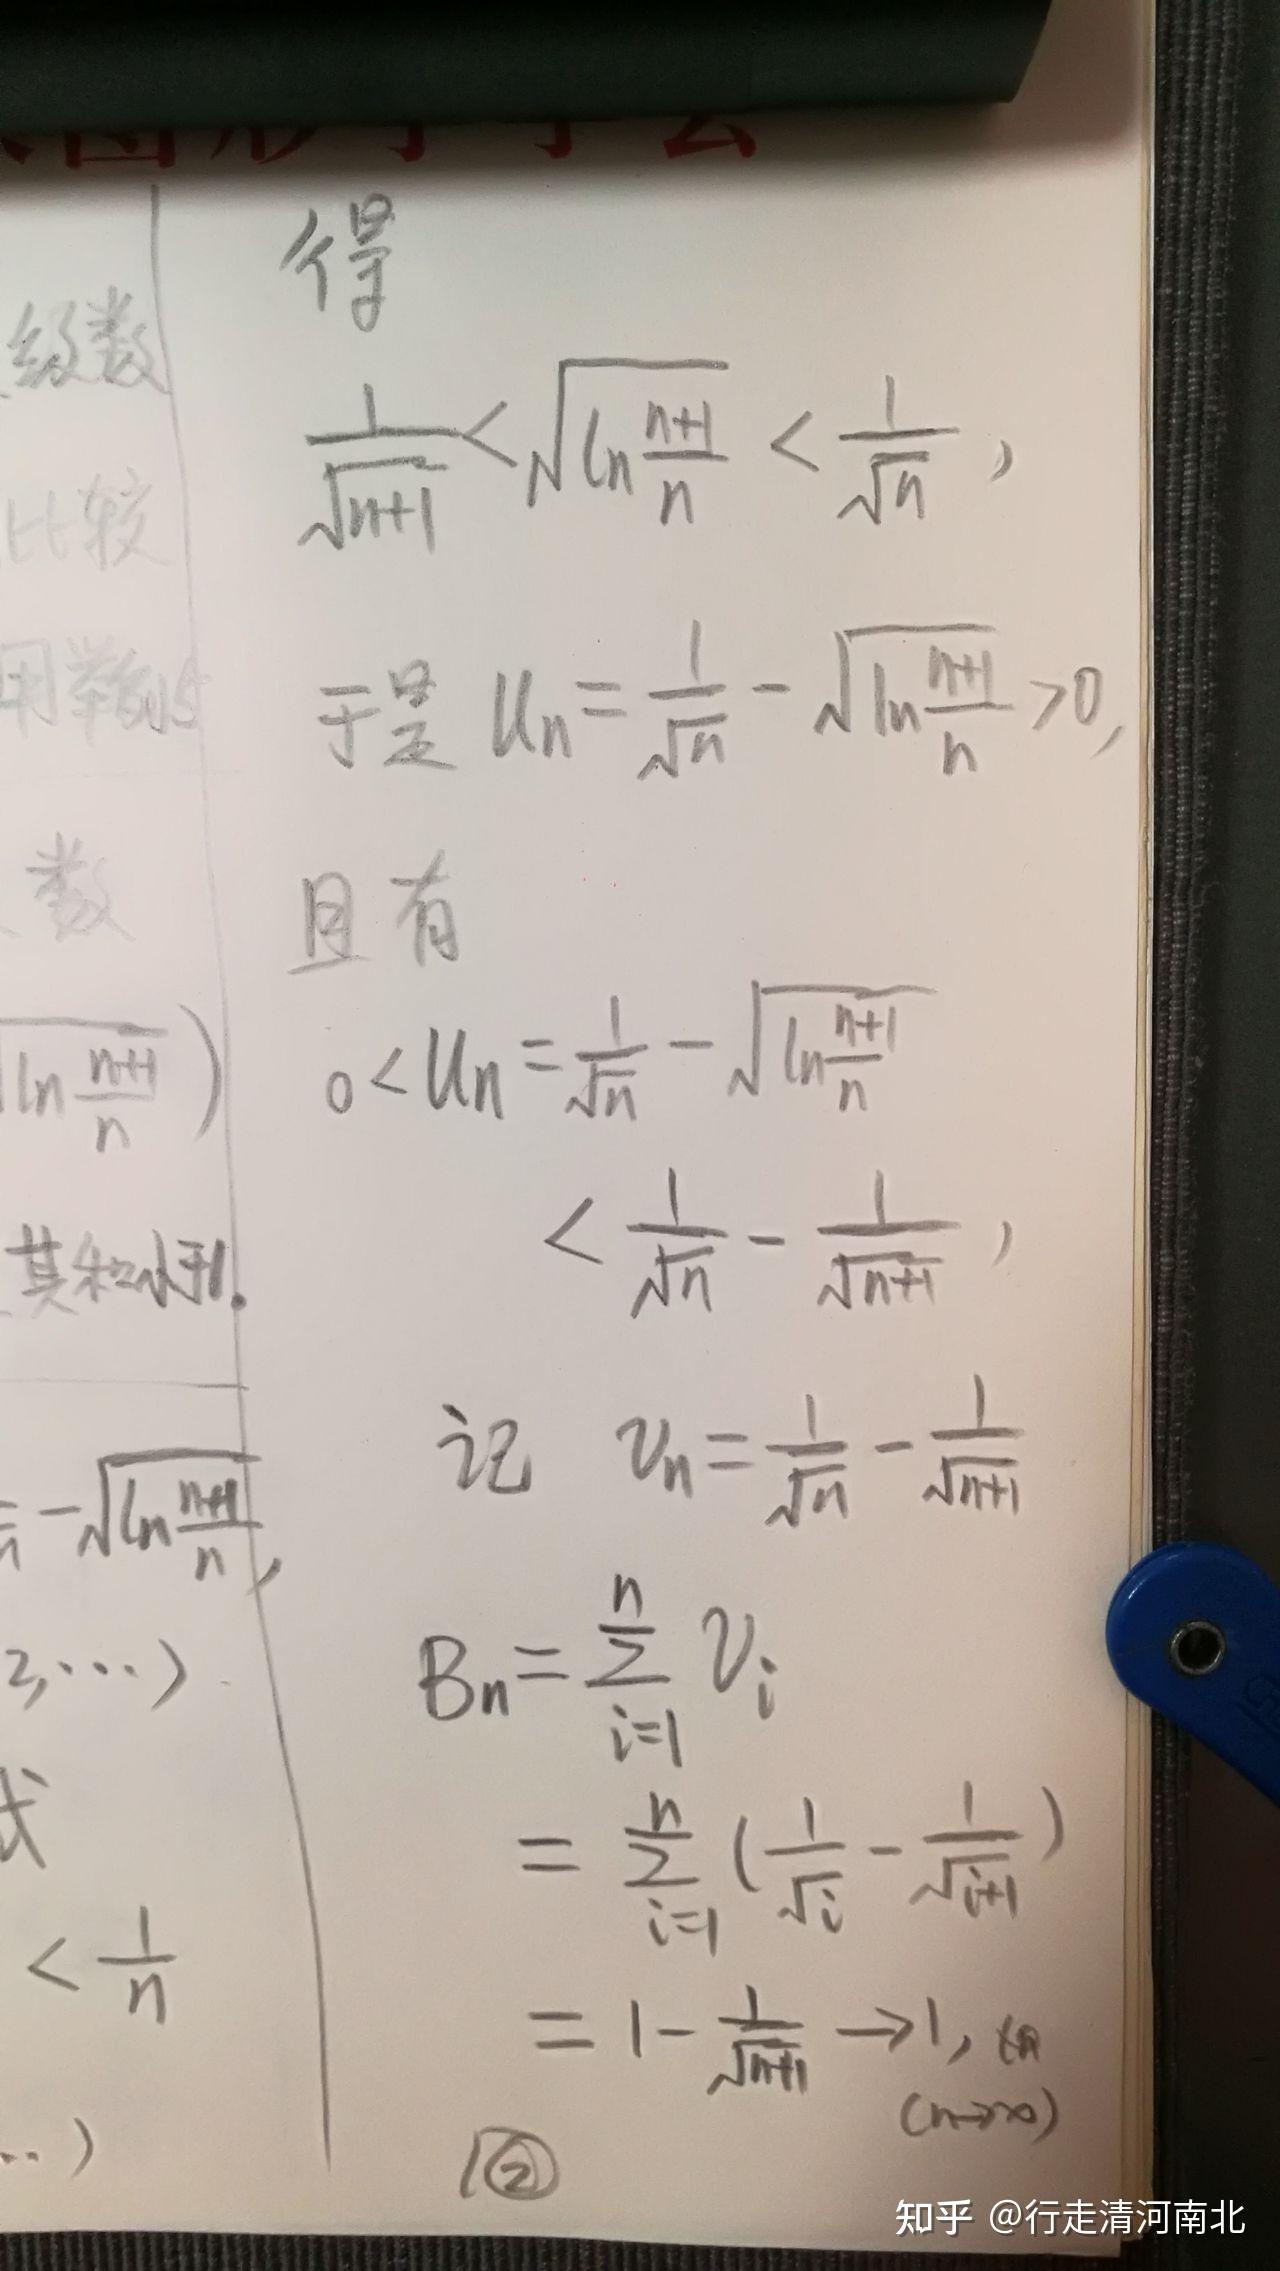 级数
比较
数
√(ln (n+1)/n) )
其和小于1.
-√(ln (n+1)/n),
2,…).
式
< 1/n
…)
得
1/√(n+1) < √(ln (n+1)/n) < 1/√n ,
于是 Un = 1/√n - √(ln (n+1)/n) >0,
且有
0 < Un = 1/√n - √(ln (n+1)/n)
< 1/√n - 1/√(n+1) ,
记 Vn = 1/√n - 1/√(n+1)
Bn = Σ_{i=1}^{n} Vi
= Σ_{i=1}^{n} (1/√i - 1/√(i+1))
= 1 - 1/√(n+1) → 1,
(n→∞)
②
知乎 @行走清河南北